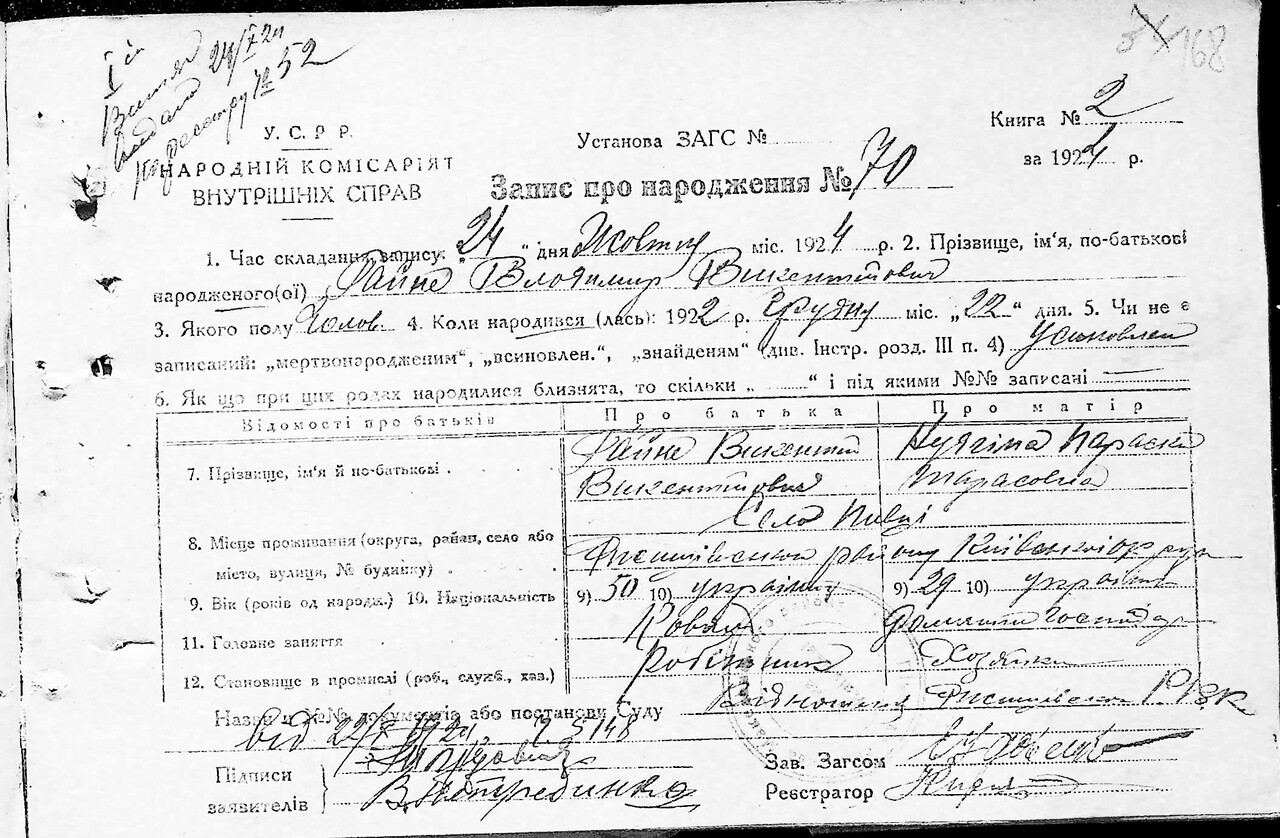 34 168
Витяг
видано 24/X 24
реєстру № 52
У. С. Р. Р.
НАРОДНІЙ КОМІСАРІЯТ
ВНУТРІШНІХ СПРАВ
Установа ЗАГС №
Книга № 2
за 1924 р.
Запис про народження № 70
1. Час складання запису: „24“ дня Жовтня міс. 1924 р. 2. Прізвище, ім'я, по-батькові
народженого(ої) Владимир Викентійович
3. Якого полу Чолов. 4. Коли народився (лась): 1922 р. Грудня міс. „22“ дня. 5. Чи не є
записаний: „мертвонародженим“, „всиновлен.“, „знайденям“ (див. Інстр. розд. III п. 4) Усиновлен
6. Як що при цих родах народилися близнята, то скільки „ “ і під якими №№ записані —
Відомості про батьків Про батька Про матір
7. Прізвище, ім'я й по-батькові . Викентій Параска
Викентійович Тарасовна
Село
8. Місце проживання (округа, район, село або
місто, вулиця, № будинку) . району Київської округи
9. Вік (років од народж.) 10. Національність 9) 50 10) україн. 9) 29 10) україн.
11. Головне заняття Коваль Домашнє господар.
12. Становище в промислі (роб., служб., хаз.) Робітник Хозяйка
Назви й №№ документів або постанови Суду
від 24/X 1924 № 5148
Підписи
заявителів
Зав. Загсом
Реєстратор